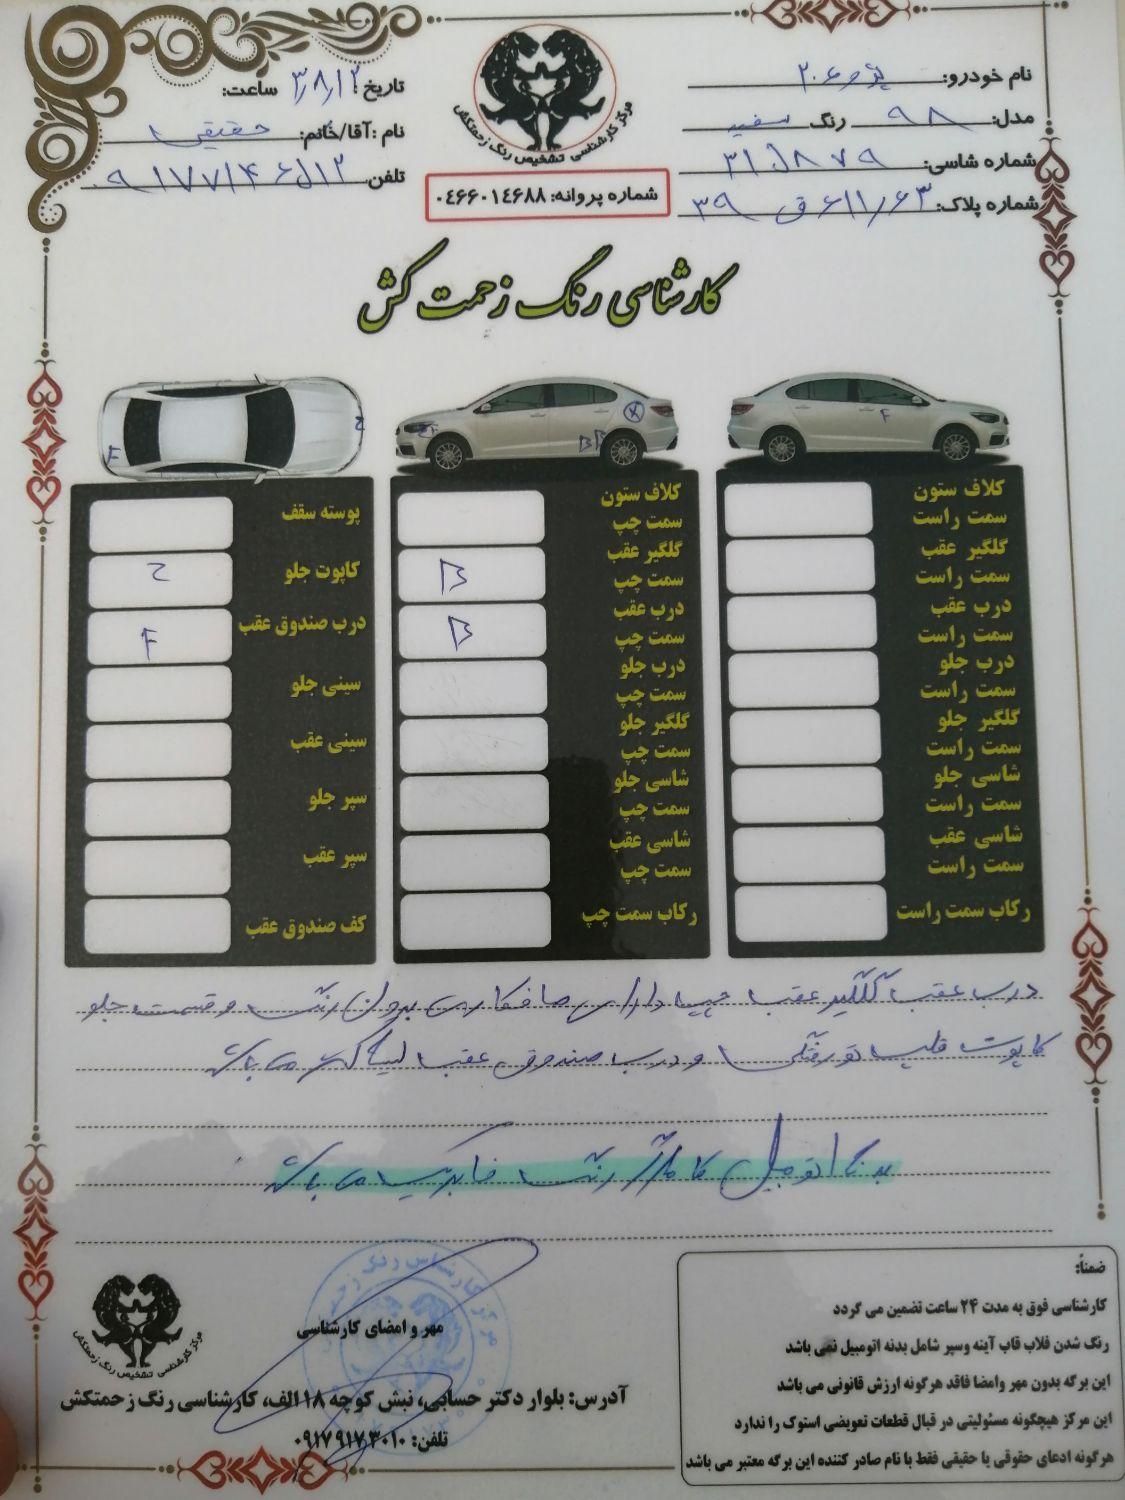 نام خودرو: پژو ۲۰۶
مدل: ۹۸ رنگ سفید
شماره شاسی:
شماره پلاک: ۶۱۱/۶۳ ق ۳۹
مرکز کارشناسی تشخیص رنگ زحمتکش
شماره پروانه: ۰٤٦٦٠١٤٦٨٨
تاریخ: ۳/۸/۱۲ ساعت:
نام :آقا/خانم: حقیقی
تلفن:
کارشناسی رنگ زحمت کش
F
X
B B
F
کلاف ستون سمت راست
گلگیر عقب سمت راست
درب عقب سمت راست
درب جلو سمت راست
گلگیر جلو سمت راست
شاسی جلو سمت راست
شاسی عقب سمت راست
رکاب سمت راست
کلاف ستون سمت چپ
گلگیر عقب سمت چپ B
درب عقب سمت چپ B
درب جلو سمت چپ
گلگیر جلو سمت چپ
شاسی جلو سمت چپ
شاسی عقب سمت چپ
رکاب سمت چپ
پوسته سقف
کاپوت جلو
درب صندوق عقب F
سینی جلو
سینی عقب
سپر جلو
سپر عقب
کف صندوق عقب
درب عقب گلگیر عقب چپ دارای صافکاری بدون رنگ و قسمت جلو
کاپوت قلپ تورفتگی و درب صندوق عقب لیسه گیری می باشد
بدنه اتومبیل کاملا رنگ فابریک می باشد
ضمناً:
کارشناسی فوق به مدت ۲۴ ساعت تضمین می گردد
رنگ شدن قلاب قاب آینه وسپر شامل بدنه اتومبیل نمی باشد
این برگه بدون مهر وامضا فاقد هرگونه ارزش قانونی می باشد
این مرکز هیچگونه مسئولیتی در قبال قطعات تعویضی استوک را ندارد
هرگونه ادعای حقوقی یا حقیقی فقط با نام صادر کننده این برگه معتبر می باشد
مهر و امضای کارشناسی
مرکز کارشناسی تشخیص رنگ زحمتکش
آدرس: بلوار دکتر حسابی، نبش کوچه ۱۸الف، کارشناسی رنگ زحمتکش
تلفن: ۰۹۱۷۹۱۷۳۰۱۰